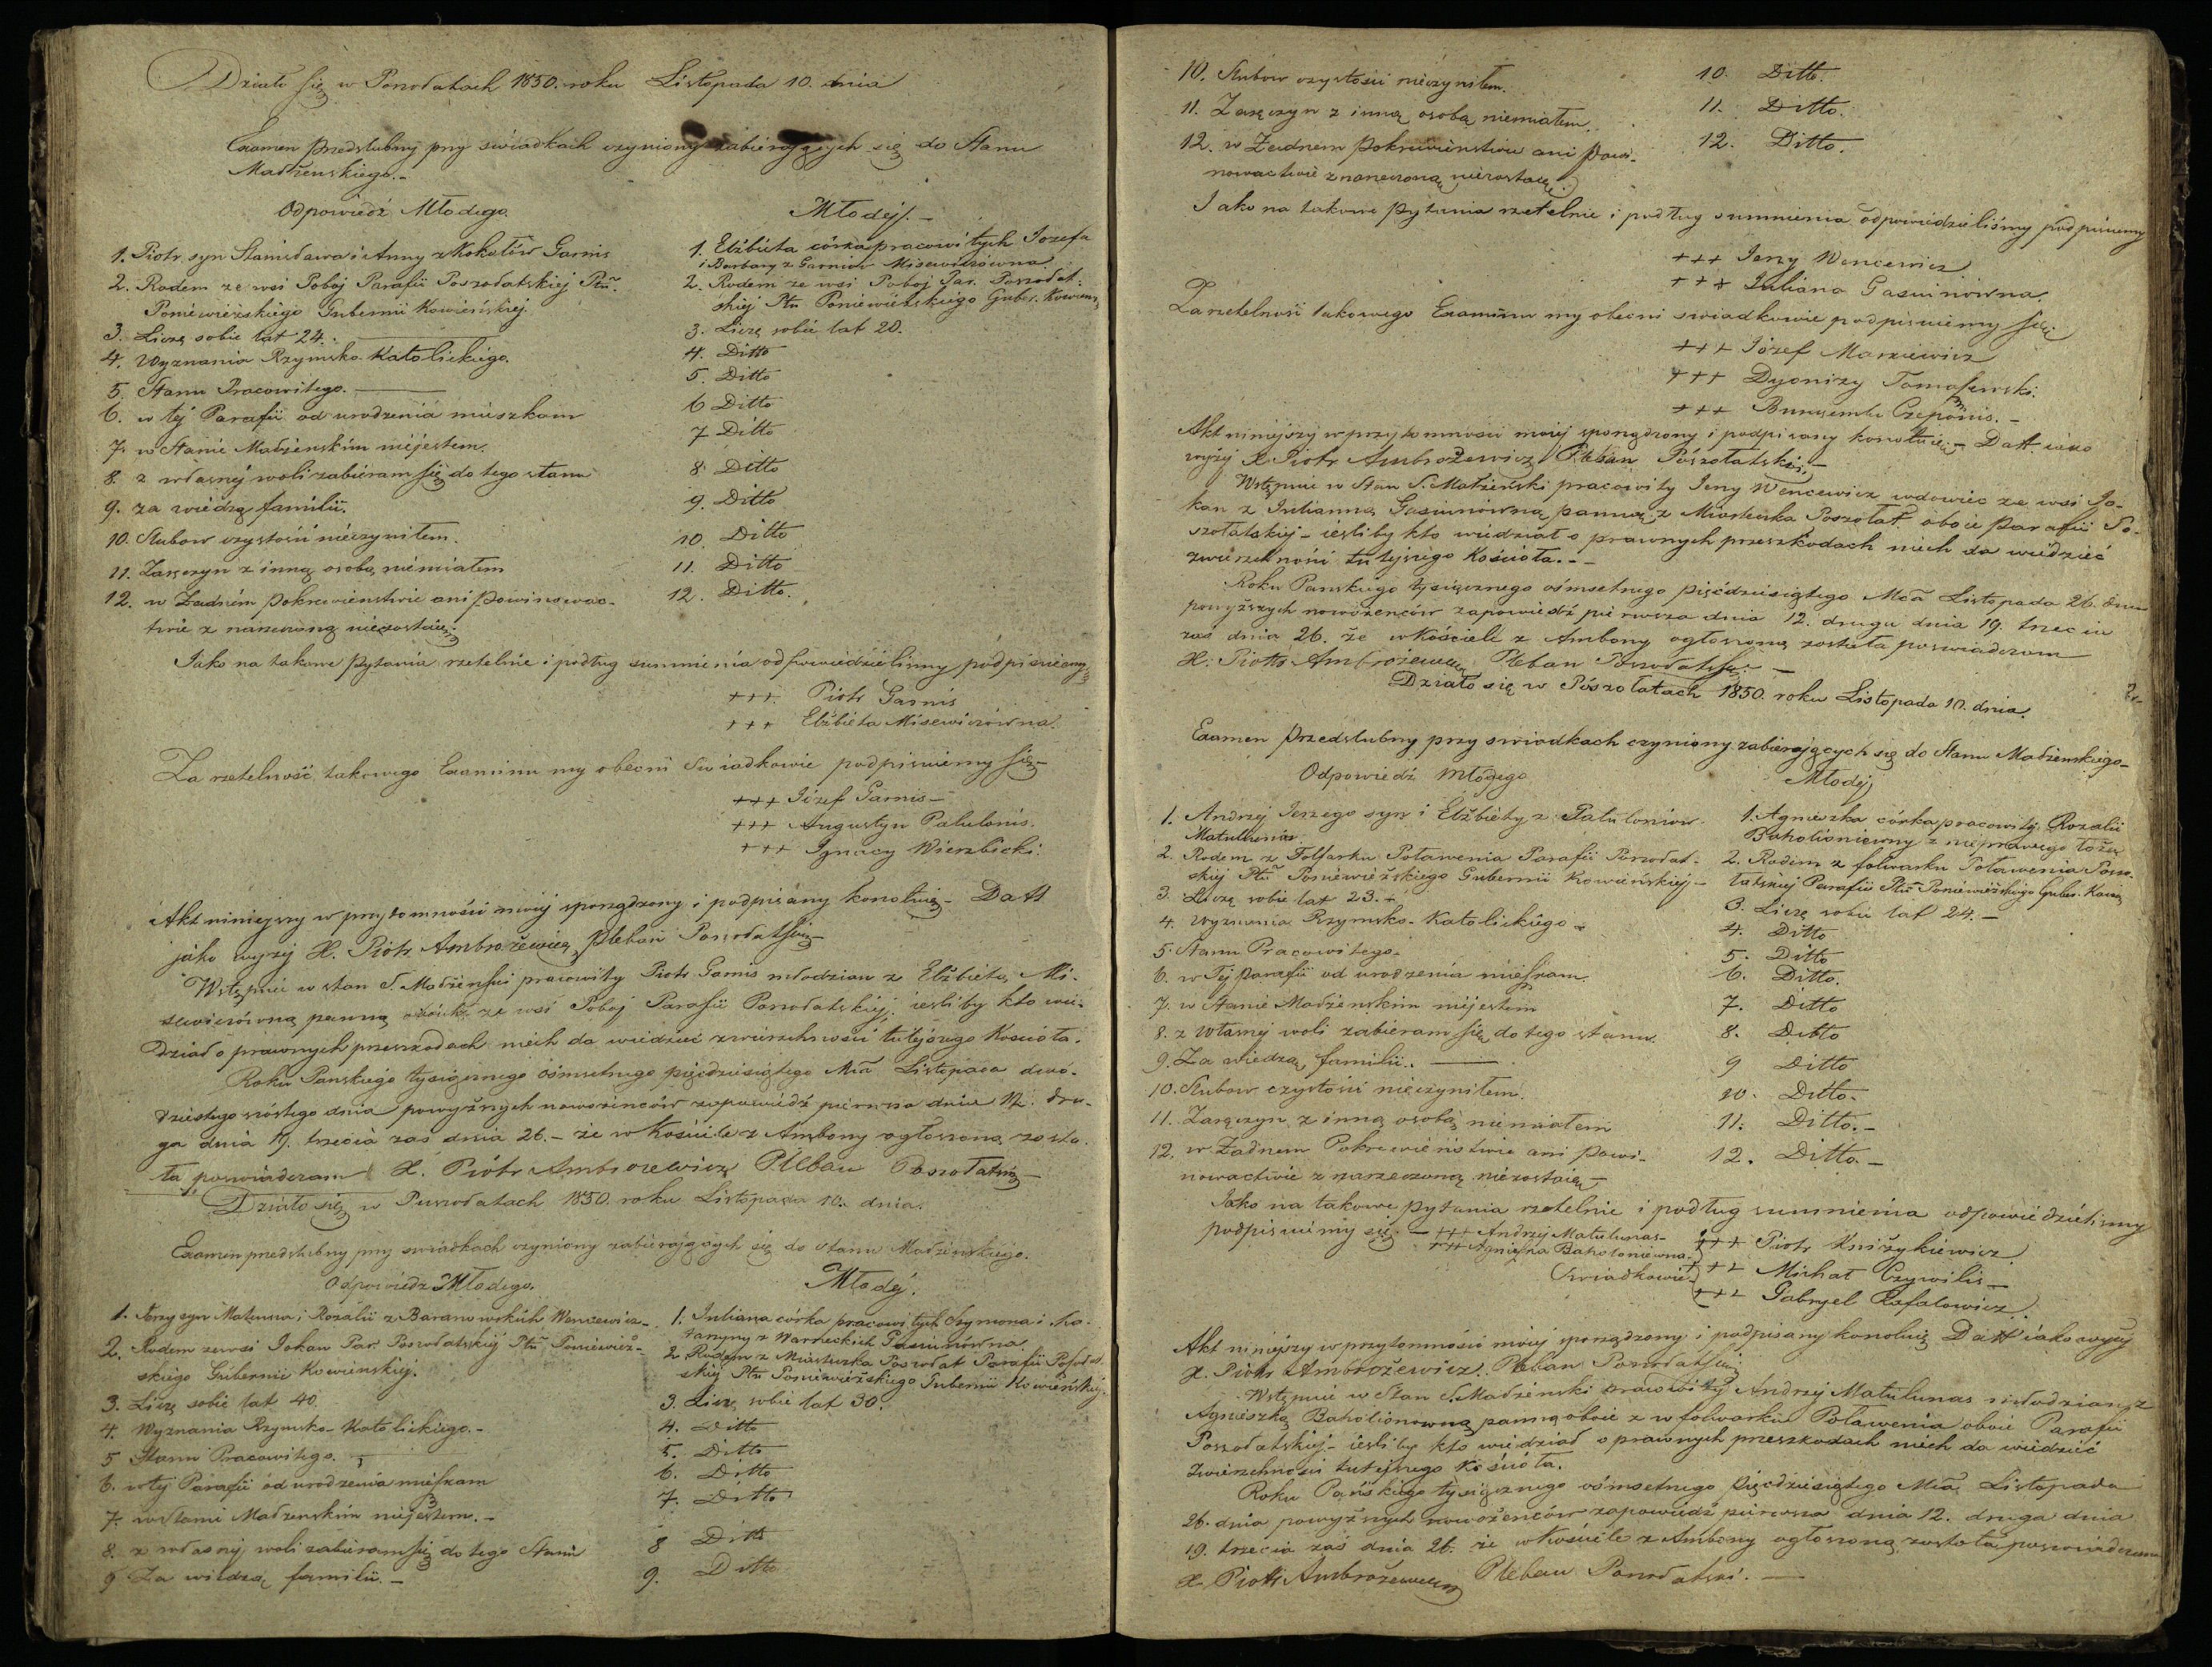 Działo się w Poszołatach 1850. roku Listopada 10. dnia
Examen przedslubny przy swiadkach czyniony zabierających się do Stanu
Małżenskiego.-
Odpowiedź Młodego.
1. Piotr syn Stanisława i Anny z Kokotów Garnis
2. Rodem ze wsi Poboj Parafii Poszołatskiej Ptũ.
Poniewieżskiego Gubernii Kowieńskiej.
3. Liczę sobie lat 24.
4. Wyznania Rzymsko-Katolickiego.
5. Stanu Pracowitego.
6. w tej Parafii od urodzenia mieszkam
7. w Stanie Małżenskim niejestem.
8. z własnej woli zabieram się do tego stanu
9. za wiedzą familii.
10. Slubow czystości nieczyniłem.
11. Zaręczyn z inną osobą niemiałem
12. w Żadnem pokrewienstwie ani powinowac-
twie z narzeczoną niezostaię.
Młodej.-
1. Elżbieta córka pracowitych Jozefa
i Barbary z Garniow Misewiczówna.
2. Rodem ze wsi Poboj Par. Poszołat-
skiej Ptũ Poniewieżskiego Guber. Kowiens.
3. Liczę sobie lat 20.
4. Ditto
5. Ditto
6 Ditto
7 Ditto
8 Ditto
9. Ditto
10. Ditto
11. Ditto
12. Ditto.
Jako na takowe pytania rzetelnie i podług summienia odpowiedzielismy podpisuiemy
+++ Piotr Garnis
+++ Elżbieta Misewiczówna.
Za rzetelność takowego Examinu my obecni Swiadkowie podpisuiemy się-
+++ Józef Garnis-
+++ Augustyn Palulonis.
+++ Ignacy Wierzbicki.
Akt niniejszy w przytomności moiej sporządzony i podpisany konotuię- Datt
jako wyżej X. Piotr Ambrożewicz Pleban Poszołatski-
Wstępuie w stan S. Małżeński pracowity Piotr Garnis młodzian z Elżbietą Mi-
sewiczówną panną oboie ze wsi Poboj Parafii Poszołatskiej; iesliby kto wie-
dział o prawnych przeszkodach niech da wiedzieć zwierzchności tutejszego Kościoła.
Roku Panskiego tysiącznego ośmsetnego pięćdziesiątego Mcã Listopada dwó-
dziestego szóstego dnia powyższych nowożeńców zapowiedź pierwsza dnia 12. dru-
ga dnia 19. trzecia zaś dnia 26.- że w Kościele z Ambony ogłoszoną zosta-
ła poswiadczam X. Piotr Ambrożewicz Pleban Poszołatski-
Działo się w Puszołatach 1850. roku Listopada 10. dnia.
Examen przedslubny przy swiadkach czyniony zabierających się do Stanu Małżenskiego.
Odpowiedz Młodego.
1. Jerzy syn Mateusza i Rozalii z Baranowskich Wencewicz-
2. Rodem ze wsi Jokan Par. Poszołatskiej Ptũ Poniewież-
skiego Gubernii Kowienskiej.
3. Liczę sobie lat 40.
4. Wyznania Rzymsko-Katolickiego.-
5 Stanu Pracowitego.
6. w tej Parafii od urodzenia mieszkam
7. w stanie Małżenskim niejestem.-
8. z własnej woli zabieram się do tego Stanu
9 Za wiedzą familii.-
Młodej.
1. Juliana córka pracowitych Szymona i Ka-
tarzyny z Warneckich Gasiunówna
2. Rodem z Miasteczka Poszołat Parafii Poszołat-
skiej Ptũ Poniewieżskiego Gubernii Kowieńskiej.
3. Liczę sobie lat 30.
4. Ditto
5. Ditto
6. Ditto
7. Ditto
8 Ditto
9. Ditto
10. Slubow czystości nieczyniłem.
11. Zaręczyn z inną osobą niemiałem.
12. w Żadnem pokrewienstwie ani powi-
nowactwie z narzeczoną niezostaię.
10. Ditto.
11. Ditto.
12. Ditto.
Jako na takowe pytania rzetelnie i podług summienia odpowiedzieliśmy podpisuiemy
+++ Jerzy Wencewicz
+++ Juliana Gasiunówna.
Za rzetelność takowego Examinu my obecni swiadkowie podpisuiemy się
+++ Józef Maszewicz
+++ Dyonizy Tomaszewski.
+++ Czeponis.-
Akt niniejszy w przytomności moiej sporządzony i podpisany konotuię- Datt. iako
wyżej X. Piotr Ambrożewicz Pleban Poszołatski-
Wstępuie w Stan S. Małżeński pracowity Jerzy Wencewicz wdowiec ze wsi Jo-
kan z Julianną Gasiunówną panną z Miasteczka Poszołat oboie parafii Po-
szołatskiej- iesliby kto wiedział o prawnych przeszkodach niech da wiedzieć
zwierzchności tutejszego Kościoła.-
Roku Panskiego tysiącznego ośmsetnego pięćdziesiątego Mcã Listopada 26. dnia
powyższych nowożenców zapowiedź pierwsza dnia 12. druga dnia 19. trzecia
zaś dnia 26. że w Kościele z Ambony ogłoszoną została poswiadczam
X. Piotr Ambrożewicz Pleban Poszołatski-
Działo się w Poszołatach 1850. roku Listopada 10. dnia.
Examen Przedslubny przy swiadkach czyniony zabierających się do Stanu Małżenskiego-
Odpowiedź Młodego
1. Andrzej Jerzego syn i Elżbiety z Paluloniow
Matulunas
2. Rodem z Folwarku Poławenia Parafii Poszołat-
skiej Ptũ Poniewieżskiego Gubernii Kowieńskiej-
3. Liczę sobie lat 23.-
4. Wyznania Rzymsko-Katolickiego-
5. Stanu Pracowitego-
6. w Tej parafii od urodzenia mieszkam.
7. w Stanie Małżenskim niejestem
8. z Własnej woli zabieram się do tego stanu.
9. Za wiedzą familii.
10. Slubow czystości nieczyniłem.
11. Zaręczyn z inną osobą niemiałem
12. w Żadnem Pokrewieństwie ani powi-
nowactwie z narzeczoną niezostaię-
Młodej
1. Agnieszka córka pracowitej Rozalii
z nieprawego łoża
2. Rodem z folwarku Poławenia Poszo-
łatskiej Parafii Ptũ Poniewieżskiego Guber. Kowiens
3. Liczę sobie lat 24.-
4. Ditto
5. Ditto
6. Ditto.
7. Ditto
8. Ditto
9 Ditto
10. Ditto.
11. Ditto.-
12. Ditto-
Jako na takowe pytania rzetelnie i podług summienia odpowiedzielismy
podpisuiemy się- +++ Andrzej Matulunas-
+++ Agnieszka
Swiadkowie
+++ Piotr Kniżykiewicz
+++ Michał Czywilis-
+++ Gabryel Rafałowicz.
Akt niniejszy w przytomności moiej sporządzony i podpisany konotuię Datt iako wyżej
X. Piotr Ambrożewicz. Pleban Poszołatski
Wstępuie w Stan S. Małżenski pracowity Andrzej Matulunas młodzian z
Agnieszką panną oboie z w folwarku Poławenia oboie Parafii
Poszołatskiej- iesliby kto wiedział o prawnych przeszkodach niech da wiedzieć
Zwierzchności tutejszego Kościoła.
Roku Pańskiego tysiącznego ośmsetnego pięćdziesiątego Mcã Listopada
26. dnia powyższych nowożeńców zapowiedź pierwsza dnia 12. druga dnia
19. trzecia zaś dnia 26. że w Kościele z Ambony ogłoszoną została poswiadczam
X. Piotr Ambrożewicz Pleban Poszołatski.-